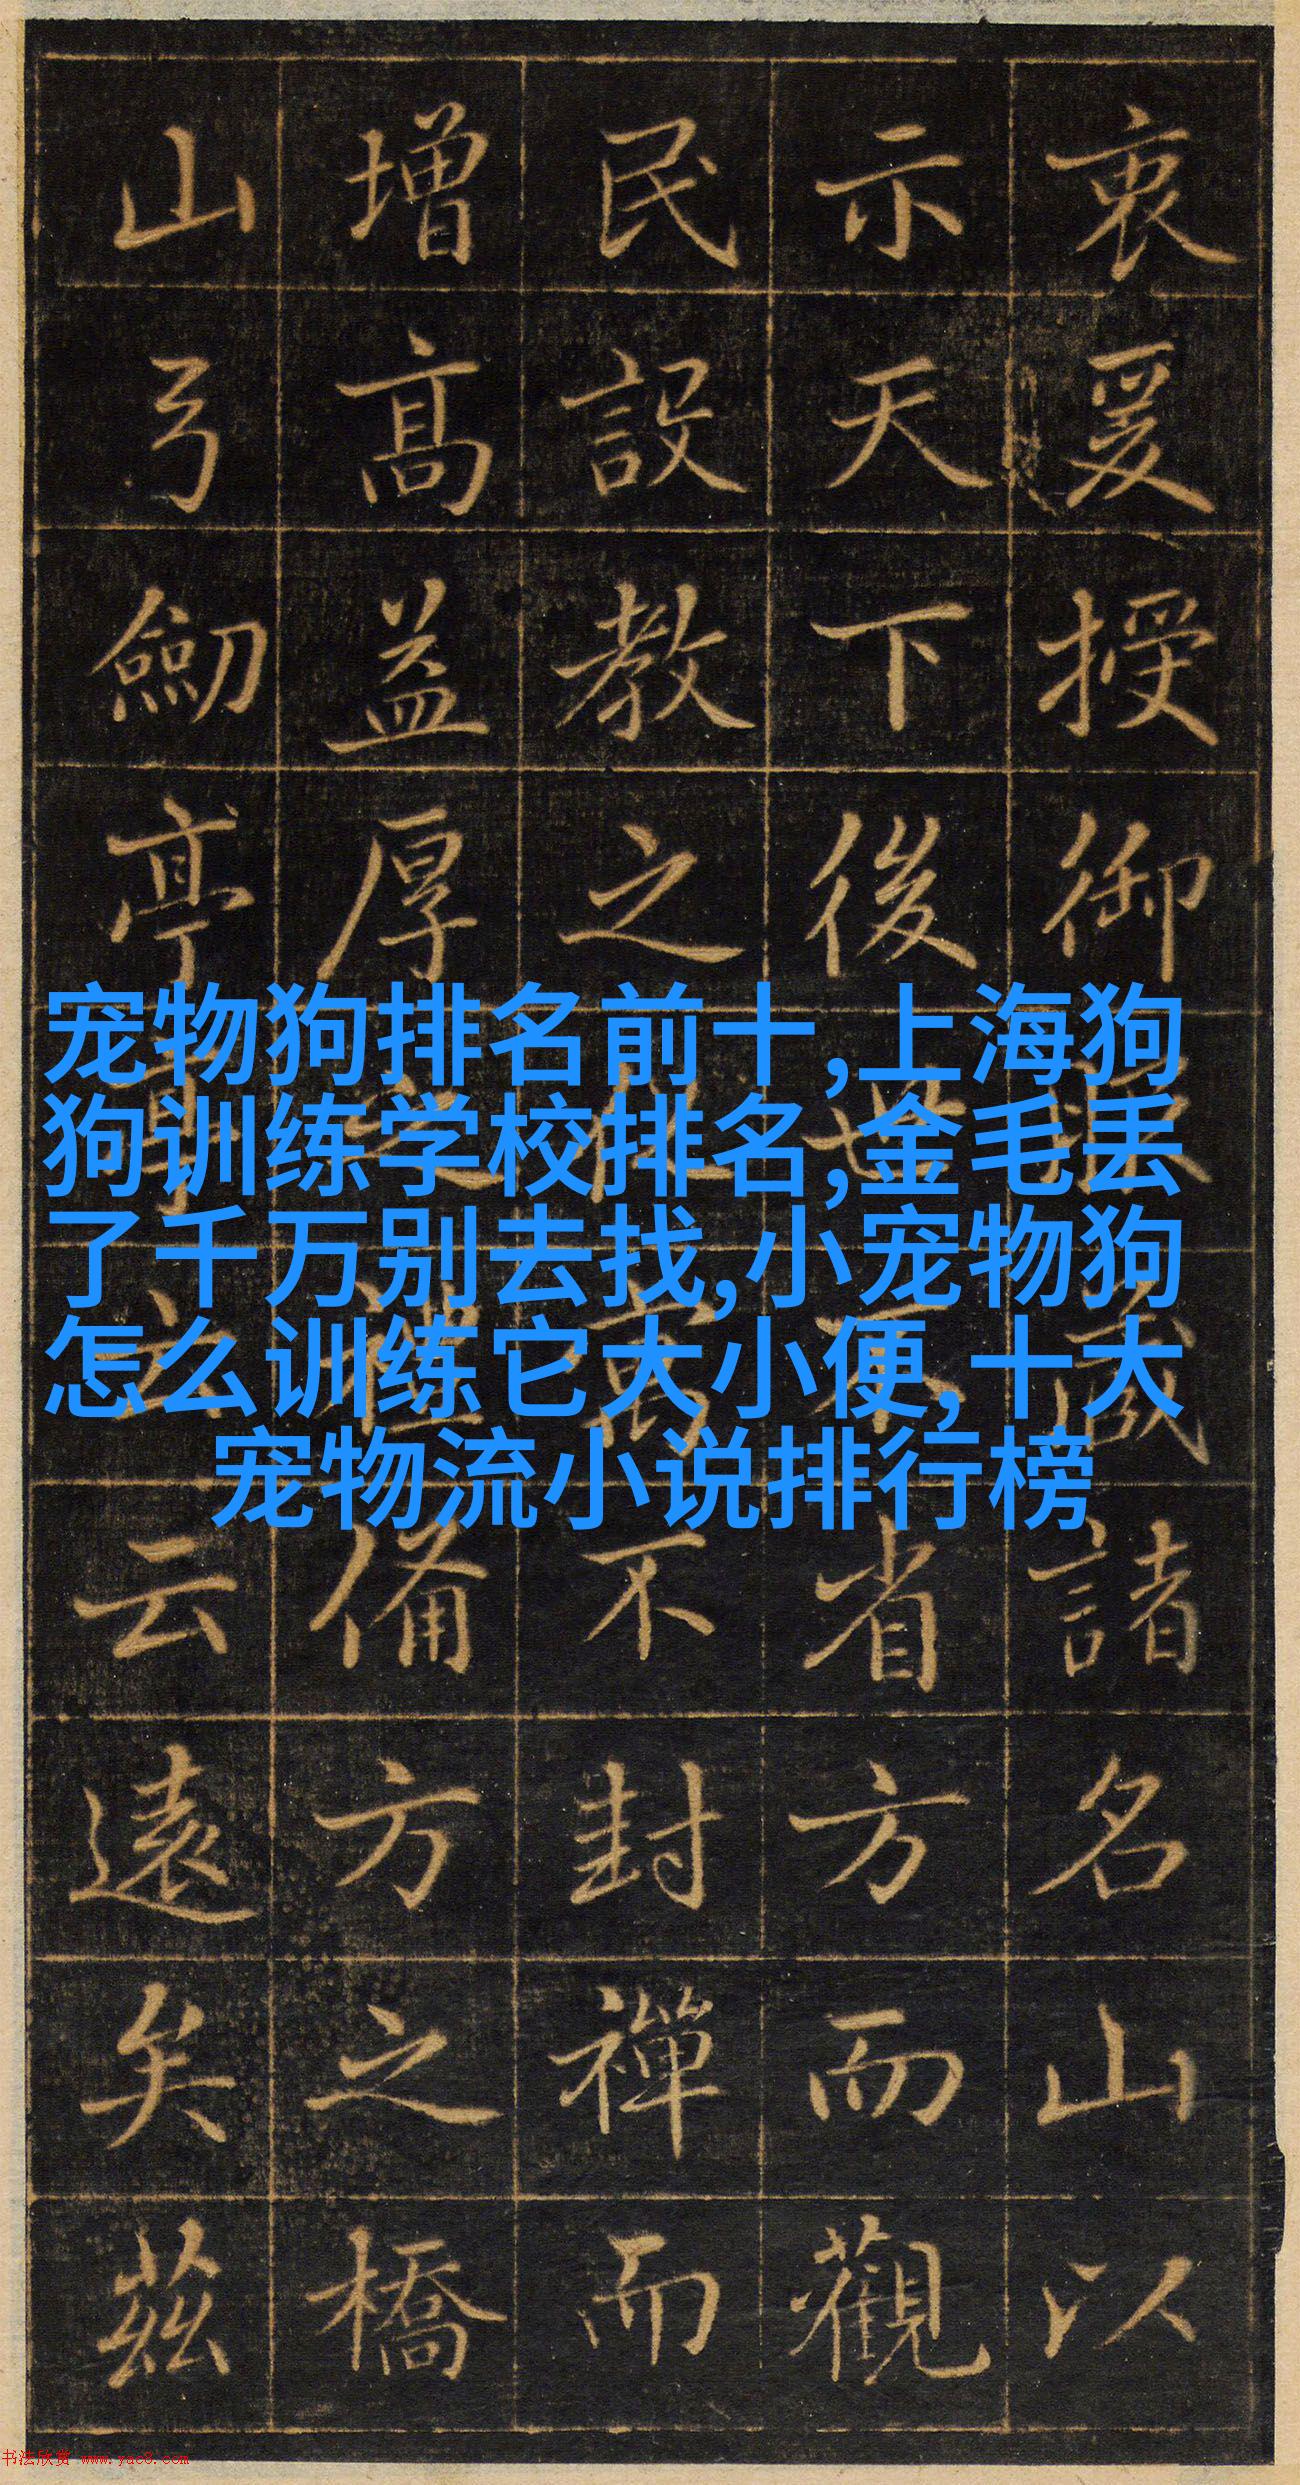 衷爰授御諸名山以
示天下後世省方而觀
民設教之萬不封禪而
增高益厚之禮備方之橋
山弓劒亭云遠矣茲
宠物狗排名前十,上海狗
狗训练学校排名,金毛丢
了千万别去找,小宠物狗
怎么训练它大小便,十大
宠物流小说排行榜
书法欣赏 www.yac8.com